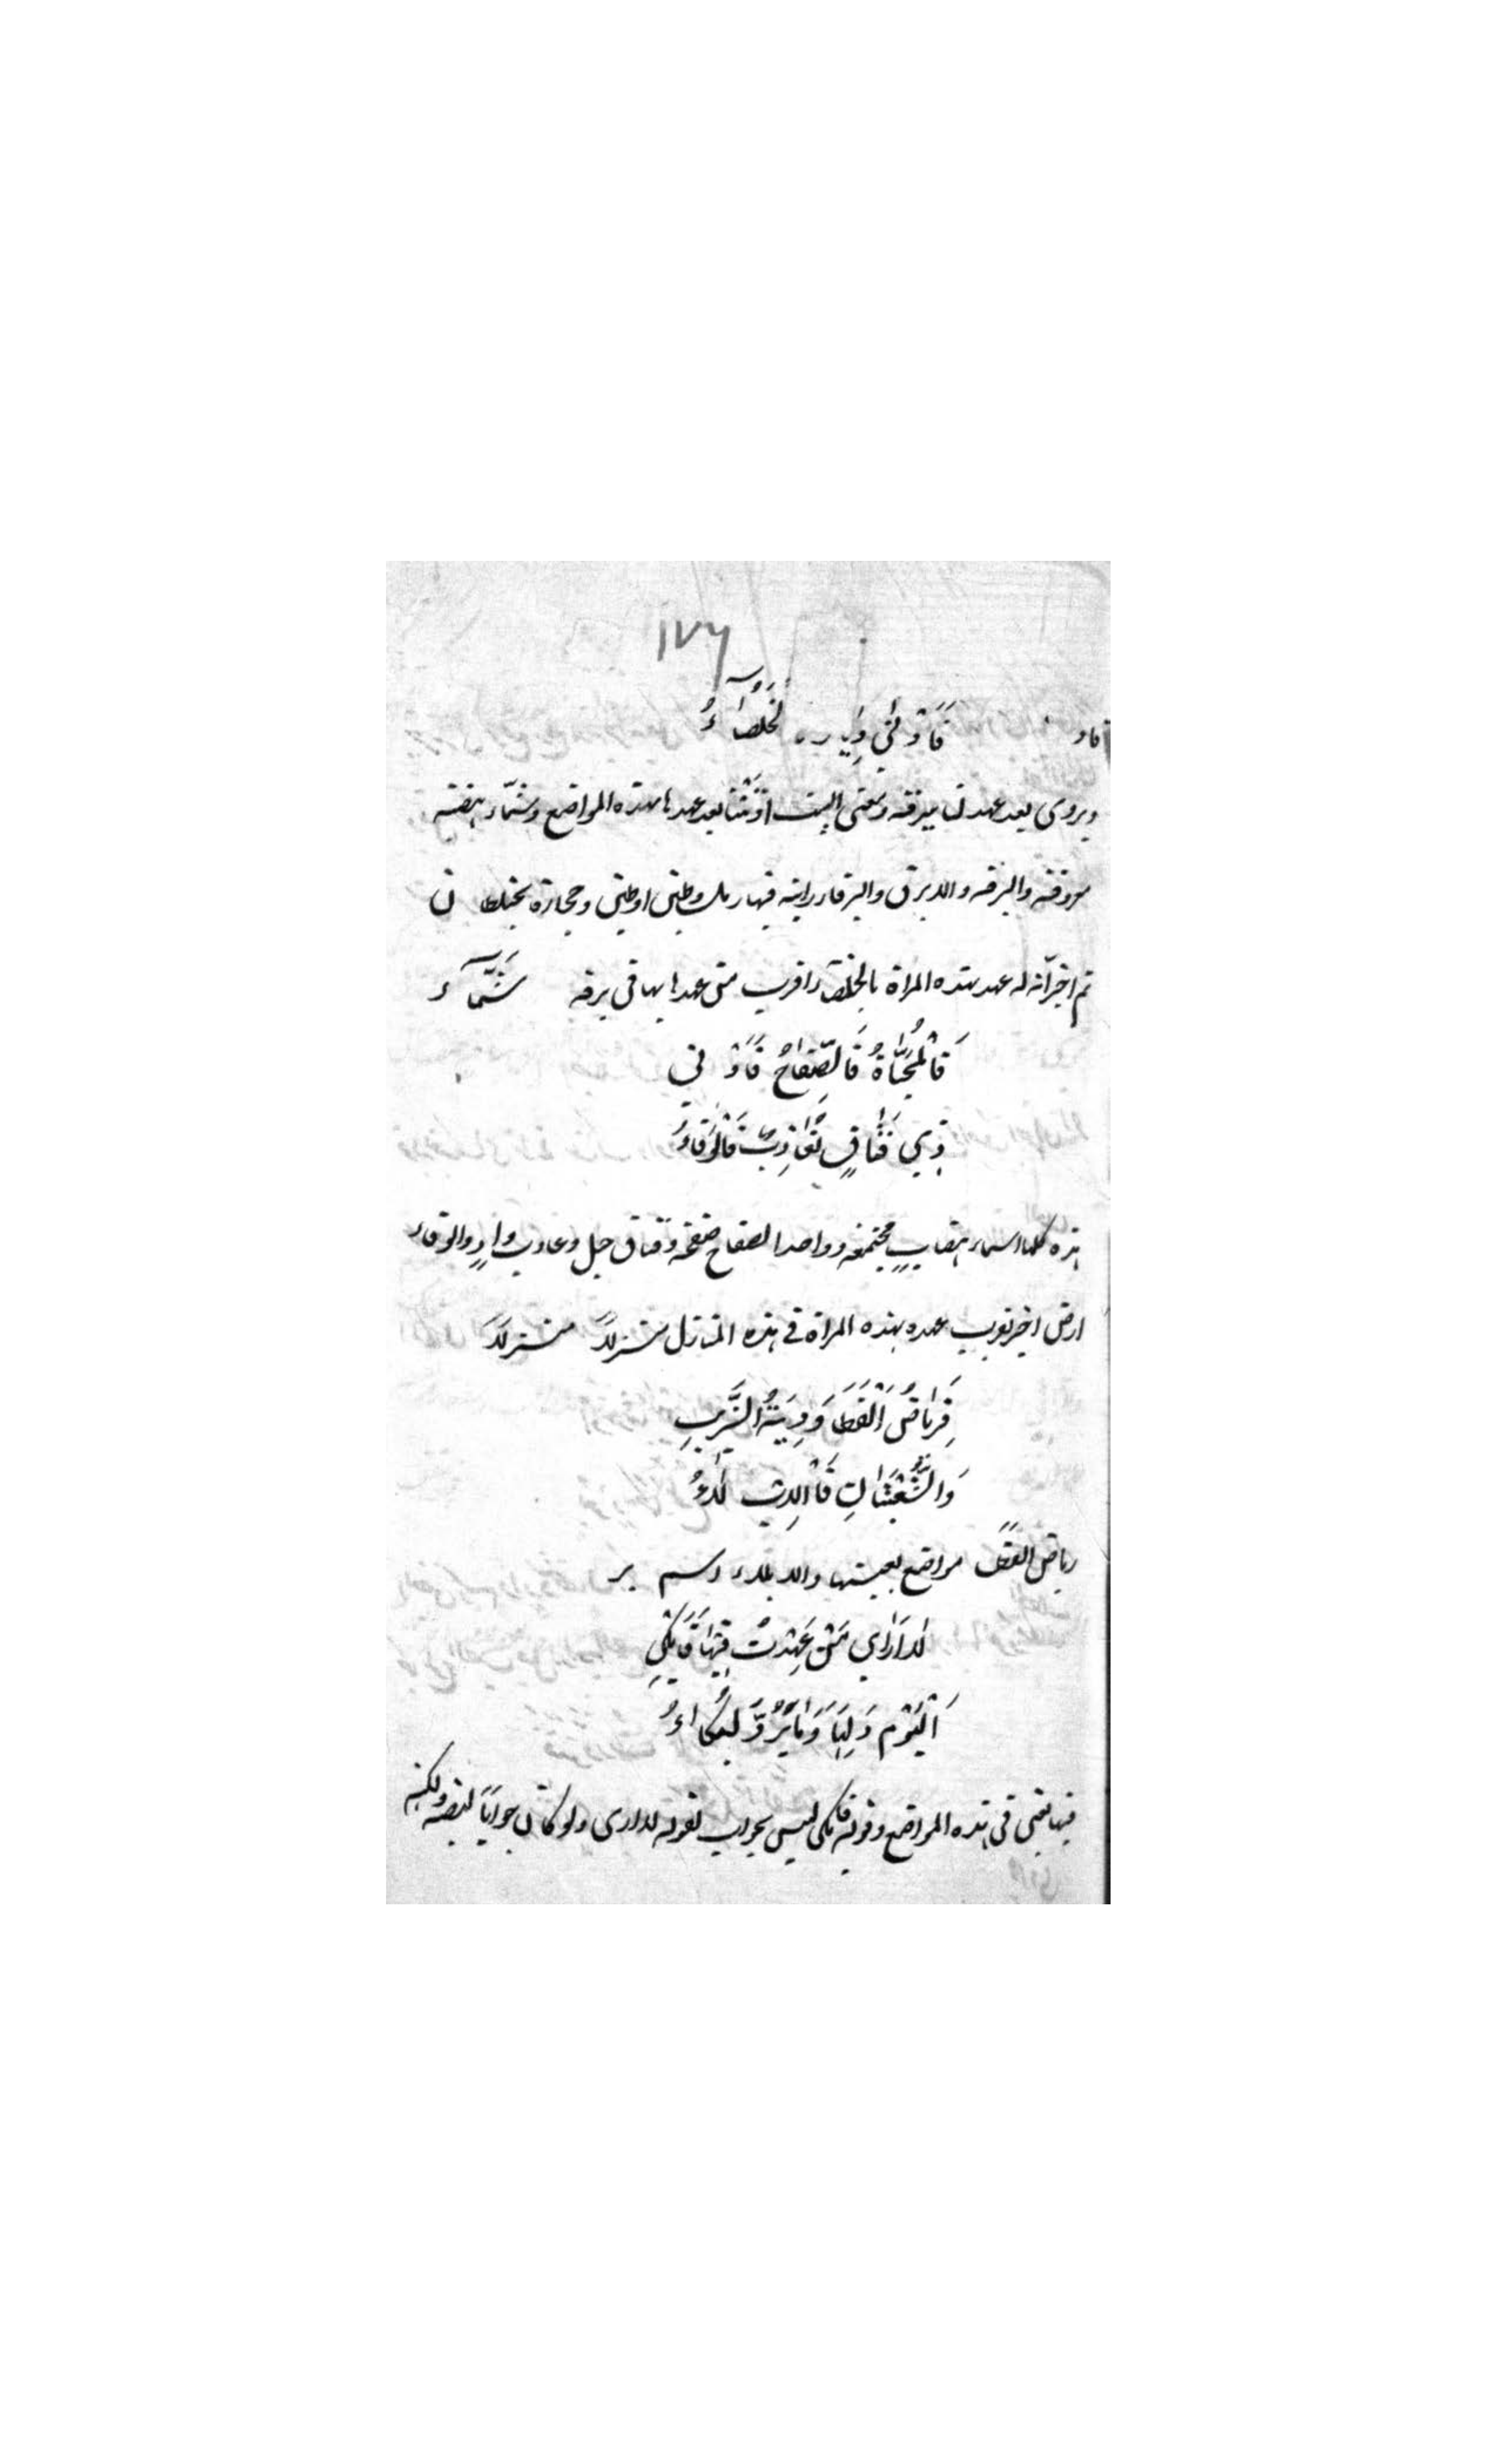 ١٧٦
فَأَدْنَى دِيَارِ الخَلْصَآءُ
ويروى بعد عهد لنا ببرقة ومعنى البيت آذنتنا بعد عهدها بهذه المواضع وشمّاء هضبة
معروفة والبرقة والابرق والبرقاء رابية فيها رمل وطين او طين وحجارة يختلطان
ثم اخبر انه له عهد بهذه المراة بالخلصاء اقرب من عهدها بها في برقة شَمَّآء
فَالْمُحَيَّاةُ فَالصِّفَاحُ فَأَدْنَى
ذِي فَتَاقٍ فَعَاذِبٌ فَالْوَفَاءُ
هذه كلها اسماء هضابٍ مجتمعه وواحد الصفاح صفحة وفتاق جبل وعاذب وادٍ والوفاء
ارض اخبر بقرب عهده بهذه المراة في هذه المنازل منزلاً منزلاً
فَرِيَاضُ الْقَطَا وَدِيَةُ الشُّرْبُبِ
وَالشُّعْبَتَانِ فَالابْلاءُ
رياض القطا مواضع بعينها والابلاء اسم بير
لا أَرَاي مَنْ عَهِدْتُ فِيْهَا فَأَبْكِي
اَلْيَوْمَ دَلِهَاً وَمَا يَرُدُّ البُكَاءُ
فيها يعني في هذه المواضع وقوله فابكي ليس بجواب لقوله لا ارى ولو كان جواباً لنصبه ولكنه